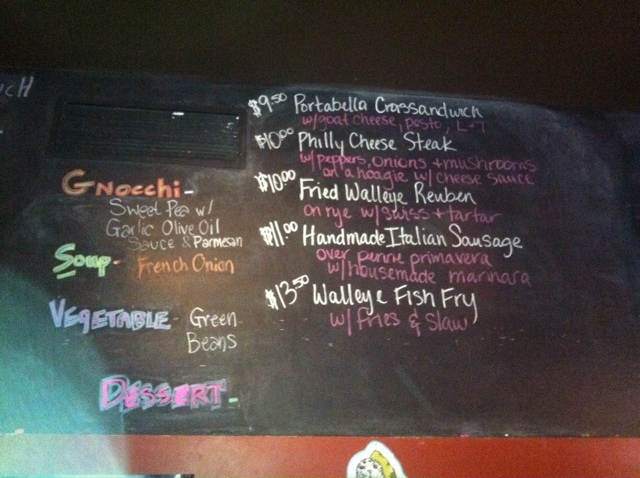 $9.50 Portabella Crossandwich
w/goat cheese, pesto, L+T
$10.00 Philly Cheese Steak
w/peppers, onions + mushrooms
on a hoagie w/ cheese sauce
$10.00 Fried Walleye Reuben
on rye w/swiss + tartar
$11.00 Handmade Italian Sausage
over penne primavera
w/housemade marinara
$13.50 Walleye Fish Fry
w/ fries & slaw
Gnocchi-
Sweet Pea w/
Garlic Olive Oil
Sauce & Parmesan
Soup- French Onion
Vegetable Green
Beans
Dessert-